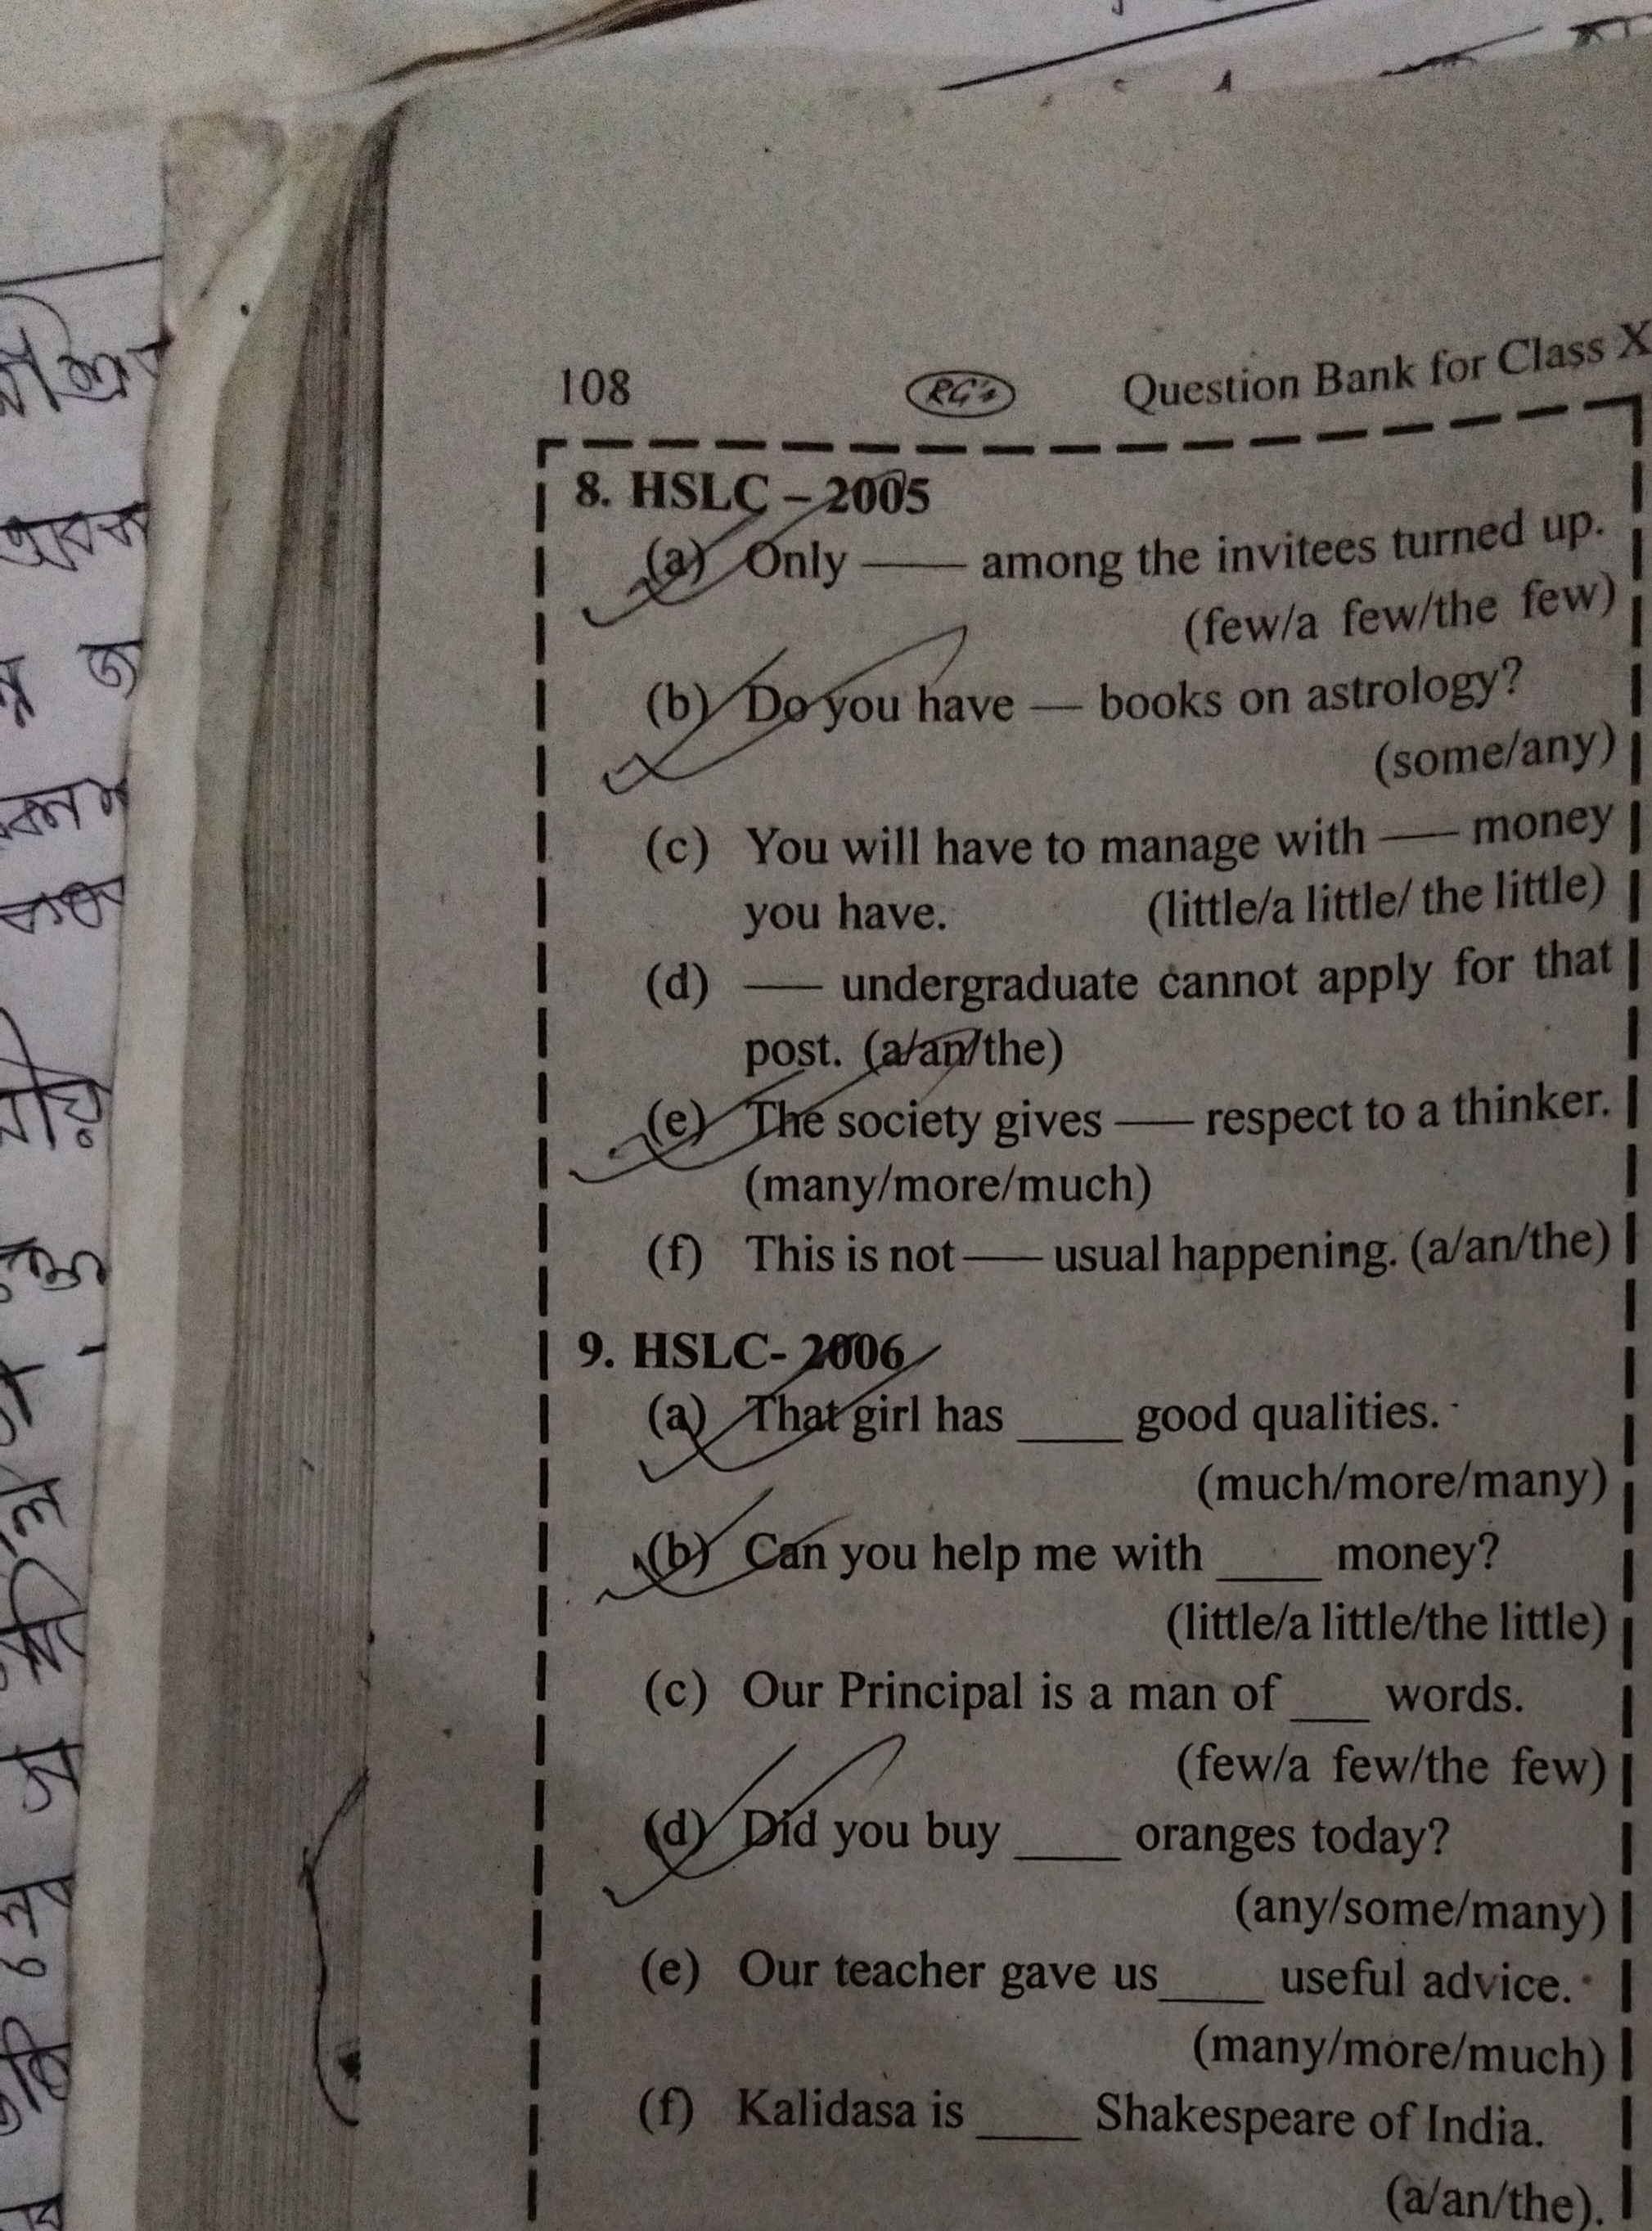 108 RG's Question Bank for Class X
8. HSLC – 2005
(a) Only —— among the invitees turned up.
(few/a few/the few)
(b) Do you have — books on astrology?
(some/any)
(c) You will have to manage with —— money
you have. (little/a little/ the little)
(d) —— undergraduate cannot apply for that
post. (a/an/the)
(e) The society gives —— respect to a thinker.
(many/more/much)
(f) This is not —— usual happening. (a/an/the)
9. HSLC- 2006
(a) That girl has ____ good qualities.
(much/more/many)
(b) Can you help me with ____ money?
(little/a little/the little)
(c) Our Principal is a man of ___ words.
(few/a few/the few)
(d) Did you buy ____ oranges today?
(any/some/many)
(e) Our teacher gave us____ useful advice.
(many/more/much)
(f) Kalidasa is ____ Shakespeare of India.
(a/an/the).